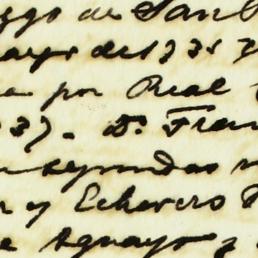 go de San
mayo de 1735
por Real
37. D. Fran
segundas
y Echevers
e Aguayo y